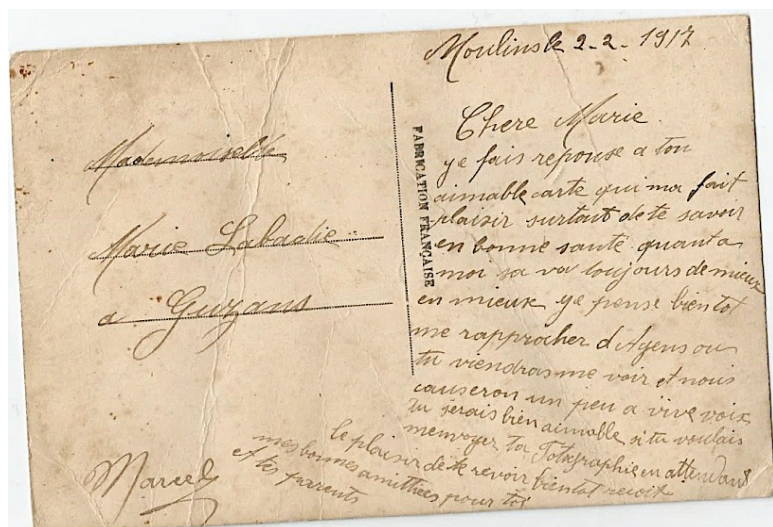 Moulins le 2-2-1917
Mademoiselle
Marie Labadie
a Guyans
FABRICATION FRANÇAISE
Chere Marie
je fais reponse a ton
aimable carte qui ma fait
plaisir surtout de te savoir
en bonne santé quant a
moi sa va toujours de mieux
en mieux je pense bientot
me rapprocher d'Agens ou
tu viendras me voir et nous
causeron un peu a vive voix
tu serais bien aimable si tu voulais
menvoyer ta Fotographie en attendant
le plaisir de te revoir bientot recoit
mes bonnes amitties pour toi
et tes parrents
Marcel